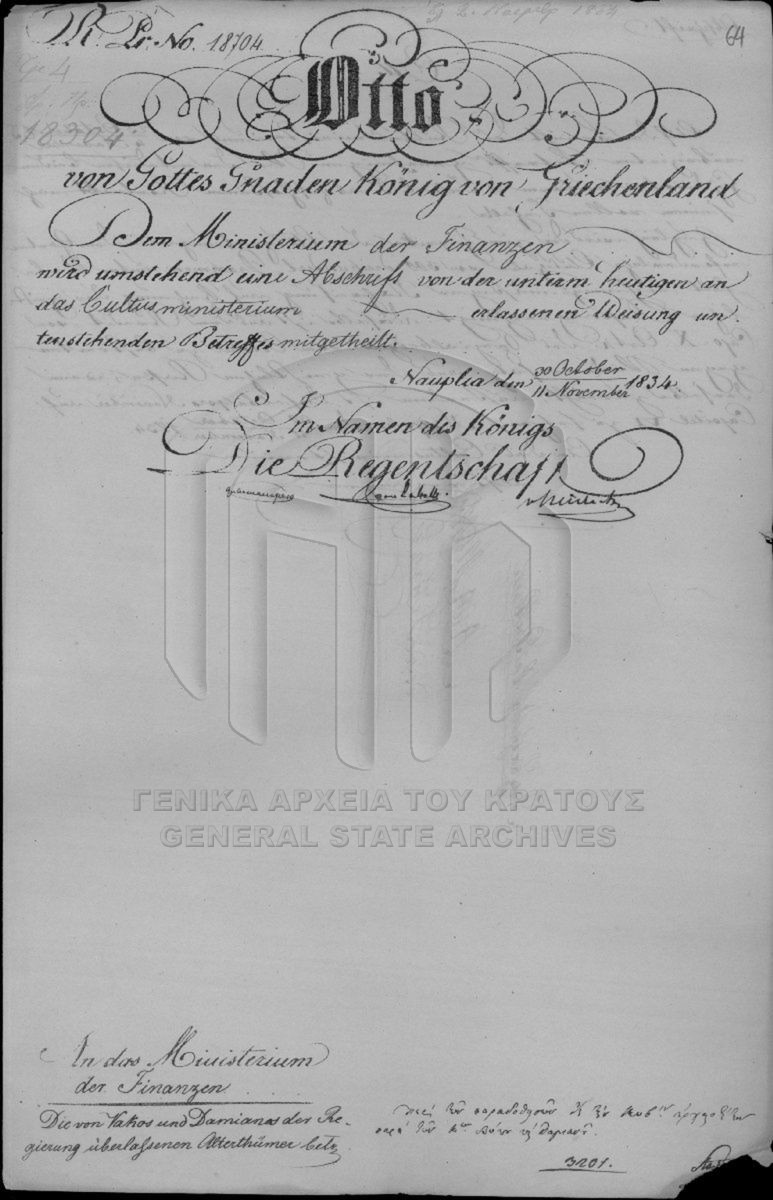 R. Pr. No. 18704.
64
18304
Otto
von Gottes Gnaden König von Griechenland
Dem Ministerium der Finanzen
wird umstehend eine Abschrift von der unterm heutigen an
das Cultusministerium erlassenen Weisung un
tenstehenden Betreffes mitgetheilt.
Nauplia den 30 October / 11 November 1834
Im Namen des Königs
Die Regentschaft
ΓΕΝΙΚΑ ΑΡΧΕΙΑ ΤΟΥ ΚΡΑΤΟΥΣ
GENERAL STATE ARCHIVES
In das Ministerium
der Finanzen
Die von Vakos und Damianos der Re-
gierung überlassenen Alterthümer betr.
3201.